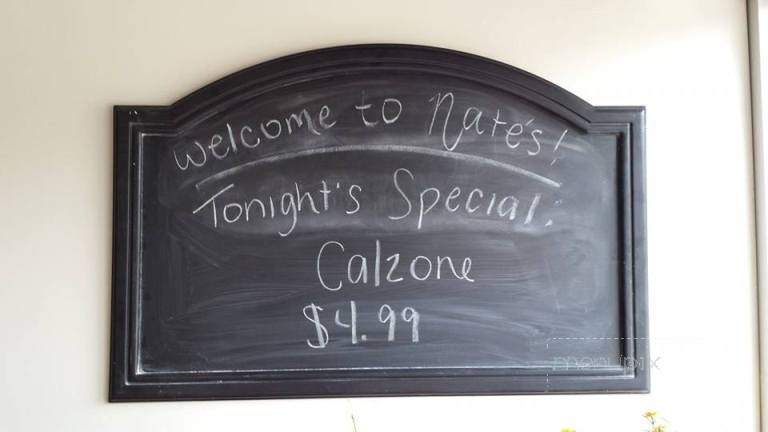 Welcome to Nate's!
Tonight's Special:
Calzone
$4.99